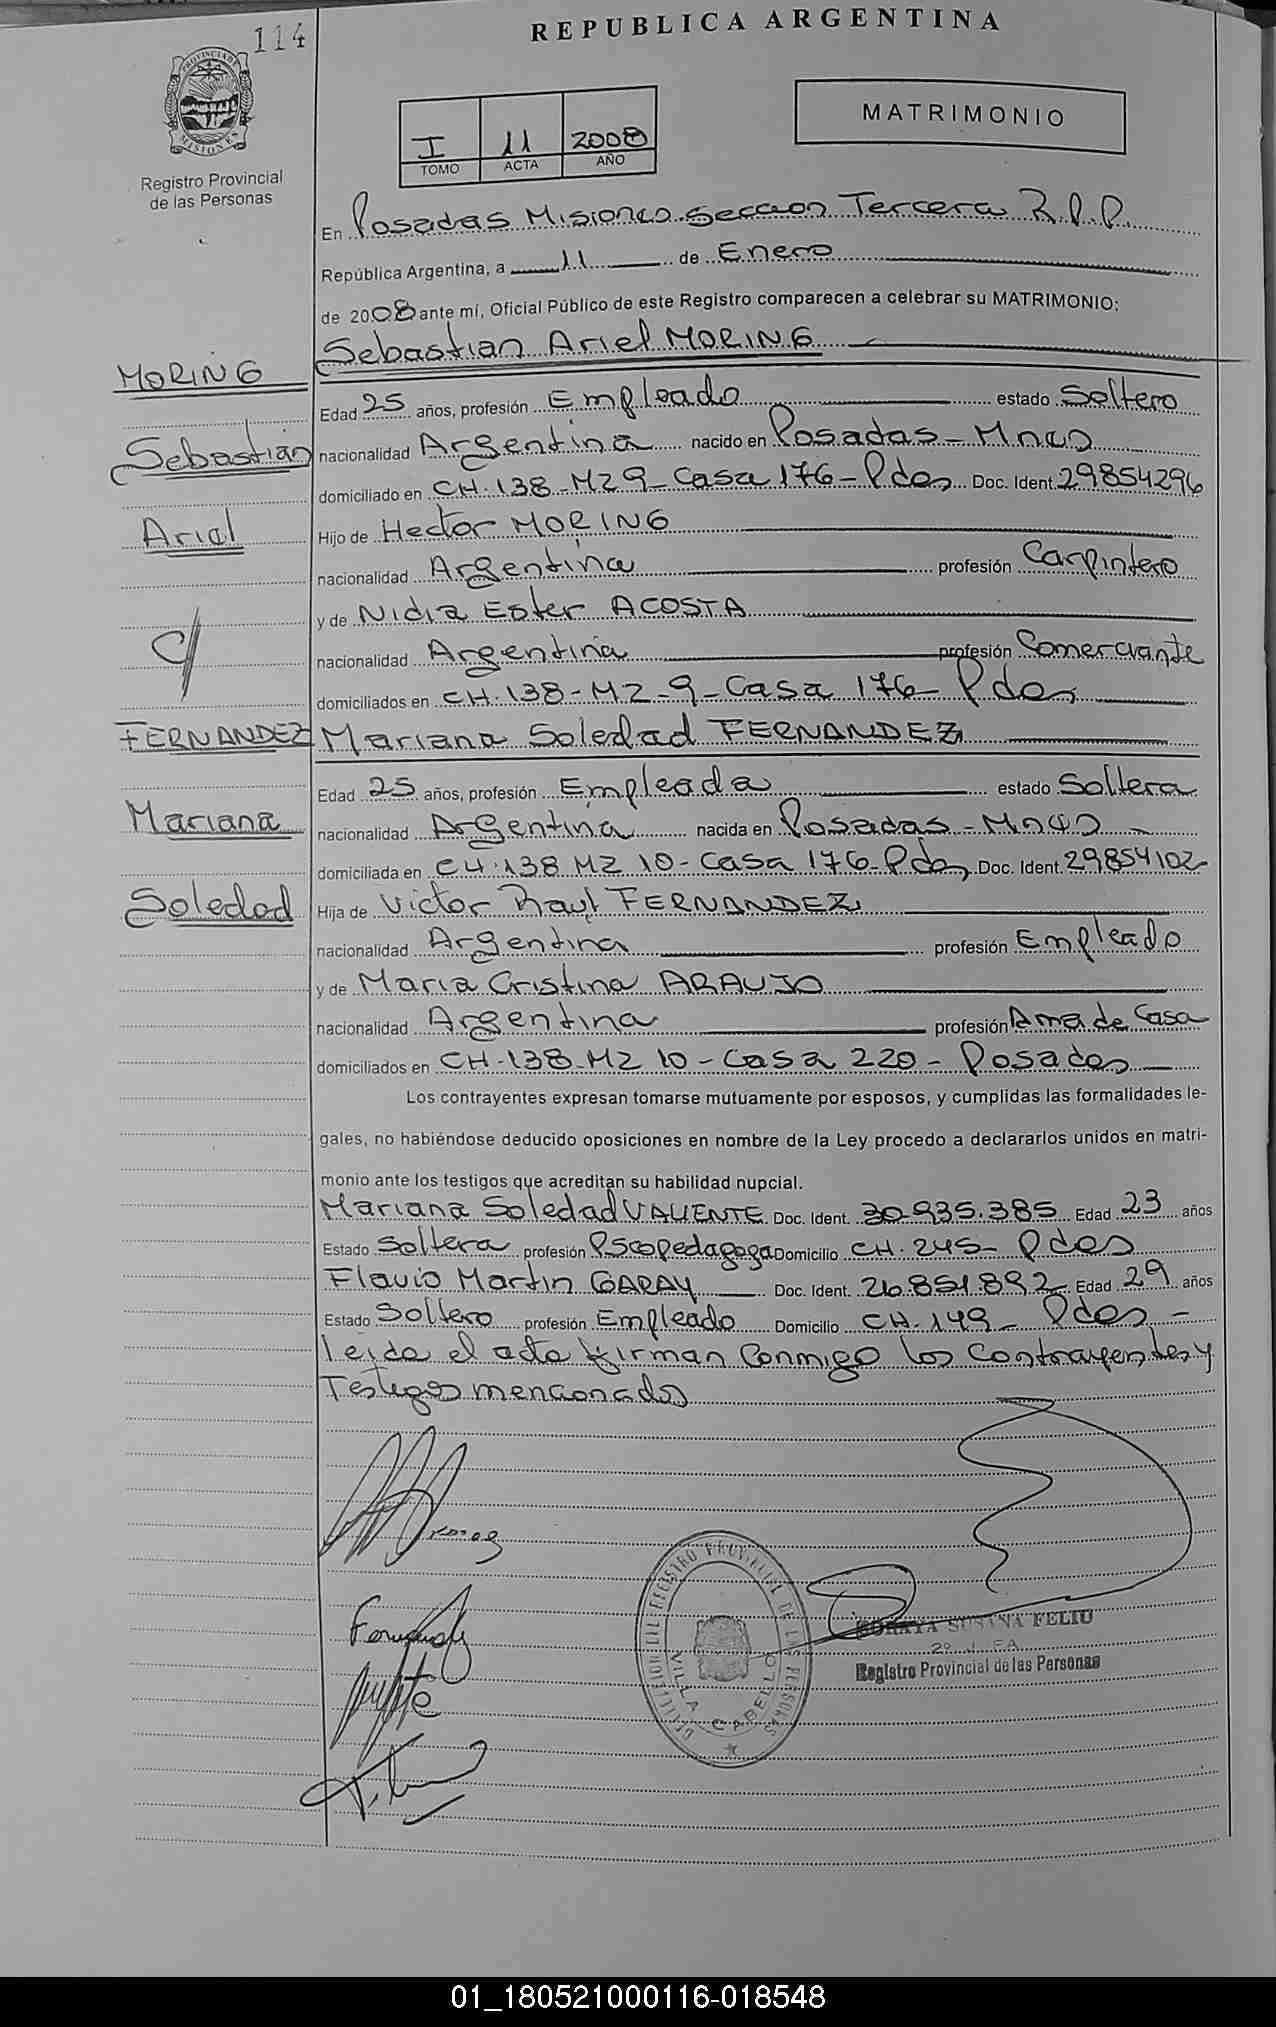 114
REPUBLICA ARGENTINA
PROVINCIA DE
MISIONES
Registro Provincial
de las Personas
I 11 2008
TOMO ACTA AÑO
MATRIMONIO
En Posadas Misiones Seccion Tercera R.P.P.
República Argentina, a 11 de Enero
de 2008 ante mí, Oficial Público de este Registro comparecen a celebrar su MATRIMONIO;
Sebastian Ariel MORING
MORING
Edad 25 años, profesión Empleado estado Soltero
Sebastian
nacionalidad Argentina nacido en Posadas - Mnes
domiciliado en CH. 138 - MZ 9 - Casa 176 - Pdas Doc. Ident. 29854296
Ariel
Hijo de Hector MORING
nacionalidad Argentina profesión Carpintero
y de Nidia Ester ACOSTA
c/
nacionalidad Argentina profesión Comerciante
domiciliados en CH. 138 - MZ - 9 - Casa 176 - Pdas
FERNANDEZ
Mariana Soledad FERNANDEZ
Edad 25 años, profesión Empleada estado Soltera
Mariana
nacionalidad Argentina nacida en Posadas - Mnes -
domiciliada en CH. 138 MZ 10 - Casa 176 - Pdas Doc. Ident. 29854102
Soledad
Hija de Victor Raul FERNANDEZ
nacionalidad Argentina profesión Empleado
y de Maria Cristina ARAUJO
nacionalidad Argentina profesión Ama de Casa
domiciliados en CH. 138 - MZ 10 - Casa 220 - Posadas
Los contrayentes expresan tomarse mutuamente por esposos, y cumplidas las formalidades le-
gales, no habiéndose deducido oposiciones en nombre de la Ley procedo a declararlos unidos en matri-
monio ante los testigos que acreditan su habilidad nupcial.
Mariana Soledad VALIENTE Doc. Ident. 30.935.385 Edad 23 años
Estado Soltera profesión Pscopedagoga Domicilio CH. 245 - Pdas
Flavio Martin GARAY Doc. Ident. 26.851.892 Edad 29 años
Estado Soltero profesión Empleado Domicilio CH. 149 - Pdas -
leida el acta firman conmigo los contrayentes y
Testigos mencionados
DIRECCION DEL REGISTRO PROVINCIAL DE LAS PERSONAS
VILLA CABELLO
SORAYA SUSANA FELIU
Registro Provincial de las Personas
01_180521000116-018548